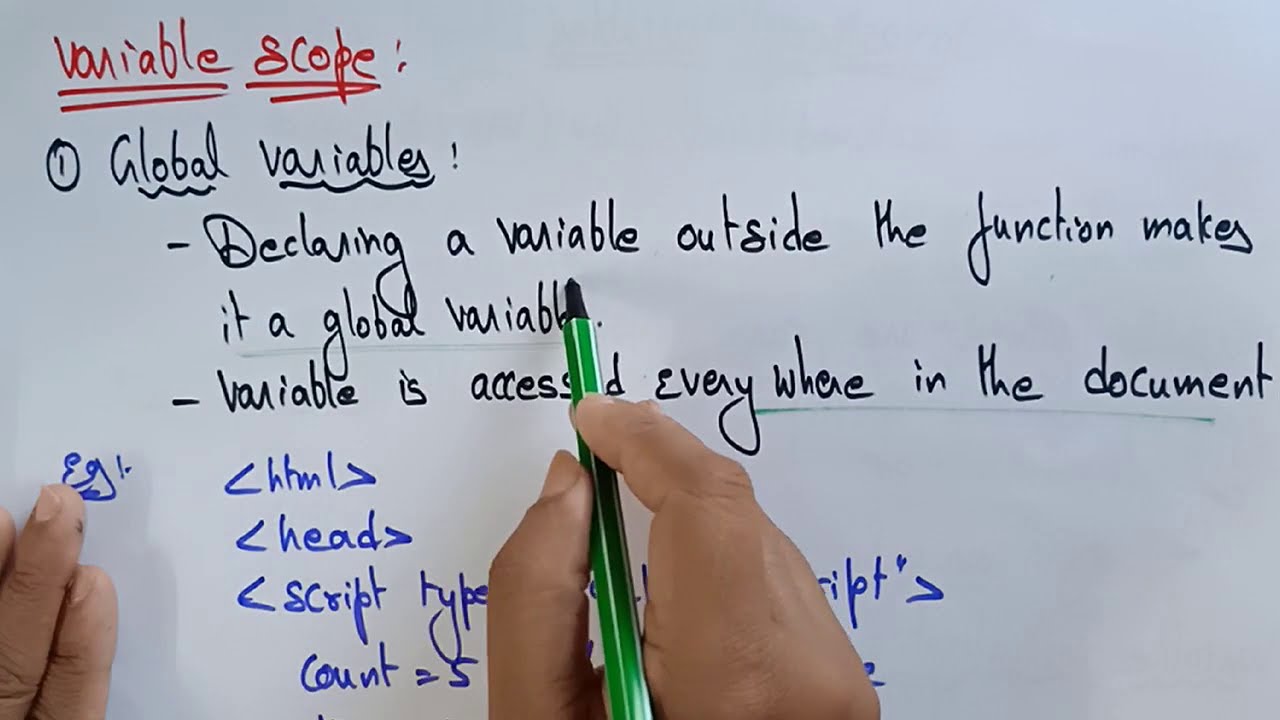 Variable scope:
① Global variables:
- Declaring a variable outside the function makes
it a global variable.
- Variable is accessed every where in the document
Eg:-
<html>
<head>
<script type
count = 5